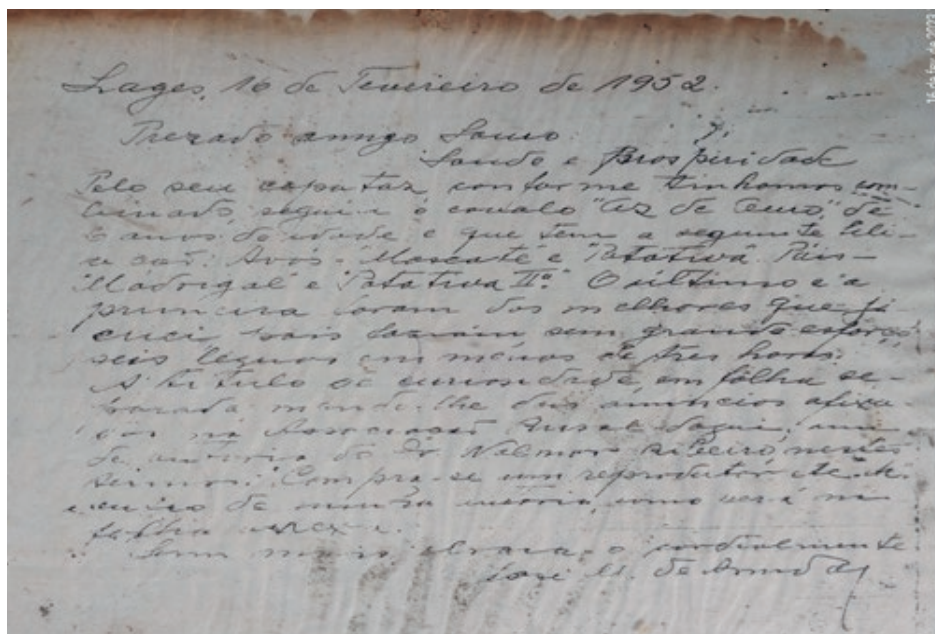 Lages, 16 de Fevereiro de 1952.
Prezado amigo
Saude e Prosperidade
Pelo seu capataz conforme tinhamos com-
binado, segue o cavalo "Az de Ouro," de
anos de idade e que tem a seguinte fili-
ação: Avós - "Mascate e "Patativa". Páis -
"Madrigal e "Patativa IIª." O último e a
primeira foram dos melhores que
pois faziam sem grande esforço
seis leguas em menos de tres horas.
A titulo de curiosidade, em fôlha se-
parada mando-lhe dois anuncios afixa-
dos na Associação Rural daqui, um
de autoria do Dr. Ribeiro, nestes
termos: Compra-se um reprodutor
de minha autoria, como verá na
folha anexa.
Sem mais abraça-o cordialmente
de Arruda
16 de fev. de 2023